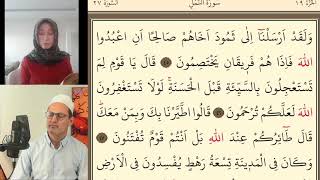 الجزء ١٩ سورة النمل السورة ٢٧
وَلَقَدْ اَرْسَلْنَٓا اِلٰى ثَمُودَ اَخَاهُمْ صَالِحًا اَنِ اعْبُدُوا
اللّٰهَ فَاِذَا هُمْ فَر۪يقَانِ يَخْتَصِمُونَ ﴿٤٥﴾ قَالَ يَا قَوْمِ لِمَ
تَسْتَعْجِلُونَ بِالسَّيِّئَةِ قَبْلَ الْحَسَنَةِۚ لَوْلَا تَسْتَغْفِرُونَ
اللّٰهَ لَعَلَّكُمْ تُرْحَمُونَ ﴿٤٦﴾ قَالُوا اطَّيَّرْنَا بِكَ وَبِمَنْ مَعَكَۜ
قَالَ طَٓائِرُكُمْ عِنْدَ اللّٰهِ بَلْ اَنْتُمْ قَوْمٌ تُفْتَنُونَ ﴿٤٧﴾
وَكَانَ فِي الْمَد۪ينَةِ تِسْعَةُ رَهْطٍ يُفْسِدُونَ فِي الْاَرْضِ